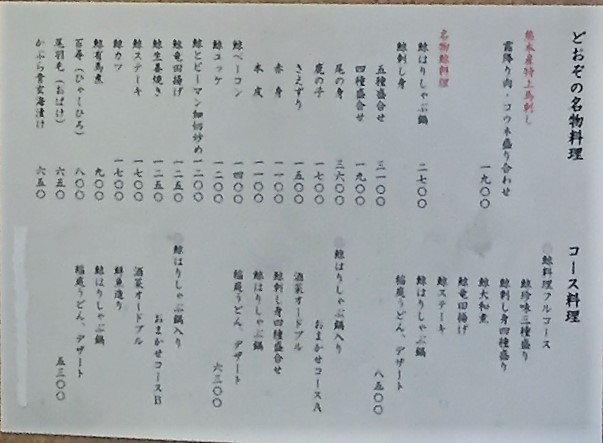 どおぞの名物料理
熊本産特上馬刺し
霜降り肉・コウネ盛り合わせ
一九〇〇
名物鯨料理
鯨はりしゃぶ鍋 二七〇〇
鯨刺し身
五種盛合せ 三一〇〇
四種盛合せ 一九〇〇
尾の身 三六〇〇
鹿の子 一七〇〇
さえずり 一五〇〇
赤身 一一〇〇
本皮 一一〇〇
鯨ベーコン 一四〇〇
鯨ユッケ 一二〇〇
鯨とピーマン細切炒め 一二〇〇
鯨竜田揚げ 一二五〇
鯨生姜焼き 一二五〇
鯨ステーキ 一七〇〇
鯨カツ 一七〇〇
鯨有馬煮 九〇〇
百尋（ひゃくひろ） 八〇〇
尾羽毛（おばけ） 六五〇
かぶら骨玄海漬け 六五〇
コース料理
鯨料理フルコース
鯨珍味三種盛り
鯨刺し身四種盛り
鯨大和煮
鯨竜田揚げ
鯨ステーキ
鯨はりしゃぶ鍋
稲庭うどん、デザート
八五〇〇
鯨はりしゃぶ鍋入り
おまかせコースA
酒菜オードブル
鯨刺し身四種盛合せ
鯨はりしゃぶ鍋
稲庭うどん、デザート
六三〇〇
鯨はりしゃぶ鍋入り
おまかせコースB
酒菜オードブル
鮮魚造り
鯨はりしゃぶ鍋
稲庭うどん、デザート
五三〇〇